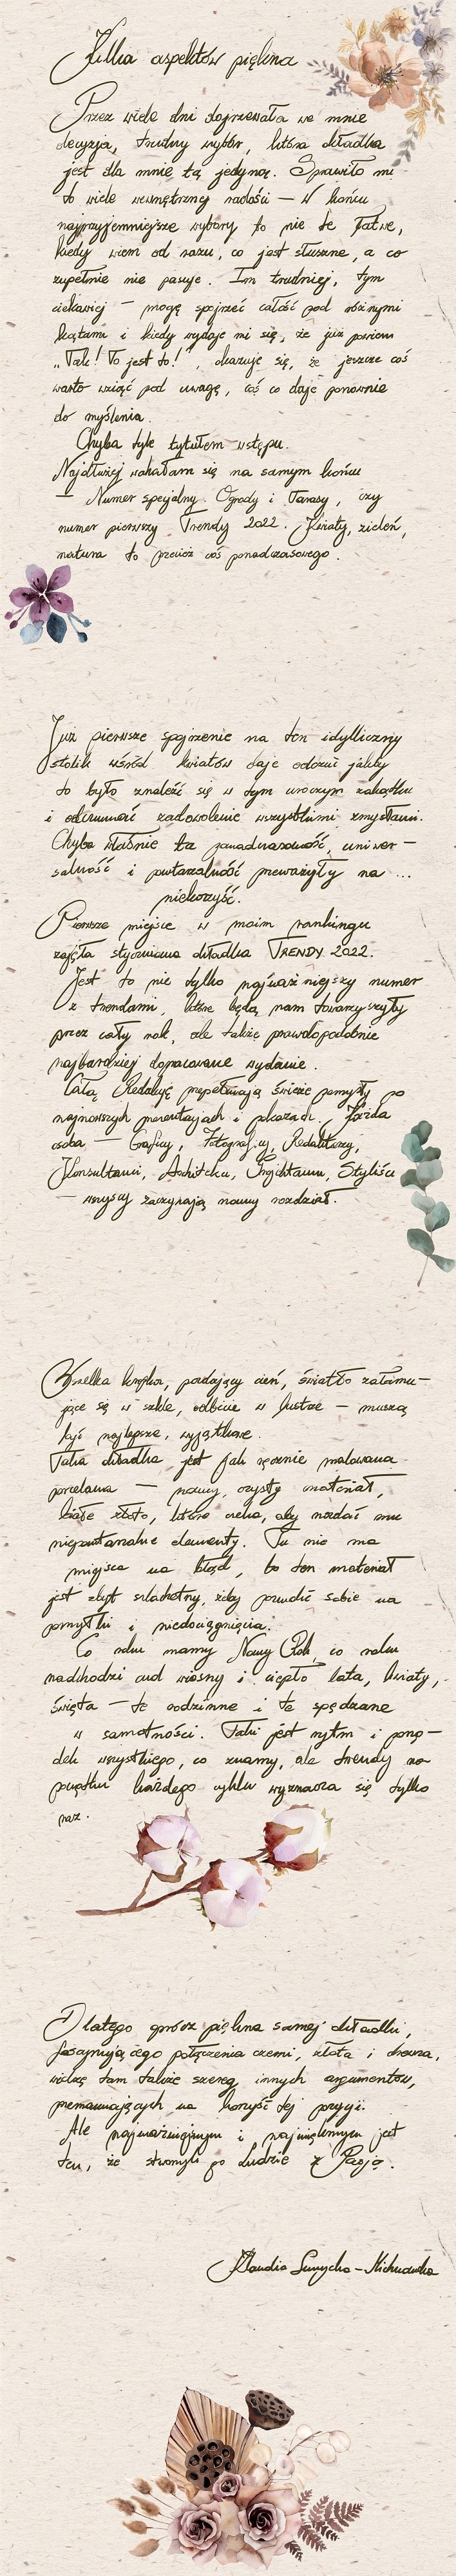 Kilka aspektów piękna
Przez wiele dni dojrzewała we mnie
decyzja, trudny wybór, która okładka
jest dla mnie tą jedyną. Sprawiło mi
to wiele wewnętrznej radości – W końcu
najprzyjemniejsze wybory to nie te łatwe,
kiedy wiem od razu, co jest słuszne, a co
zupełnie nie pasuje. Im trudniej, tym
ciekawiej – mogę spojrzeć całość pod różnymi
kątami i kiedy wydaje mi się, że już powiem
„Tak! To jest to!", okazuje się, że jeszcze coś
warto wziąć pod uwagę, coś co daje ponownie
do myślenia.
Chyba tyle tytułem wstępu.
Najdłużej wahałam się na samym końcu
– Numer specjalny. Ogrody i Tarasy, czy
numer pierwszy Trendy 2022. Kwiaty, zieleń,
natura to przecież coś ponadczasowego.
Już pierwsze spojrzenie na ten idylliczny
stolik wśród kwiatów daje odczuć jakby
to było znaleźć się w tym uroczym zakątku
i odczuwać zadowolenie wszystkimi zmysłami.
Chyba właśnie ta ponadczasowość, uniwer-
salność i powtarzalność przeważyły na ...
niekorzyść.
Pierwsze miejsce w moim rankingu
zajęła styczniowa okładka TRENDY 2022.
Jest to nie tylko najważniejszy numer
z trendami, które będą nam towarzyszyły
przez cały rok, ale także prawdopodobnie
najbardziej dopracowane wydanie.
Całą Redakcję przepełniają świeże pomysły po
najnowszych prezentacjach i pokazach. Każda
osoba – Graficy, Fotograficy, Redaktorzy,
Konsultanci, Architekci, Projektanci, Styliści
– wszyscy zaczynają nowy rozdział.
Wszelka kropka, padający cień, światło załamu-
jące się w szkle, odbicie w lustrze – muszą
być najlepsze, wyjątkowe.
Taka okładka jest jak ręcznie malowana
porcelana – nowy, czysty materiał,
białe złoto, które czeka, aby nadać mu
niepowtarzalne elementy. Tu nie ma
miejsca na błąd, bo ten materiał
jest zbyt szlachetny, żeby pozwolić sobie na
pomyłki i niedociągnięcia.
Co roku mamy Nowy Rok, co roku
nadchodzi cud wiosny i ciepło lata, kwiaty,
święta – te rodzinne i te spędzane
w samotności. Taki jest rytm i porzą-
dek wszystkiego, co znamy, ale trendy na
początku każdego cyklu wyznacza się tylko
raz.
Dlatego oprócz piękna samej okładki,
fascynującego połączenia czerni, złota i drewna,
widzę tam także szereg innych argumentów,
przemawiających na korzyść tej pozycji.
Ale najważniejszym i najpiękniejszym jest
ten, że stworzyli go Ludzie z Pasją.
Klaudia